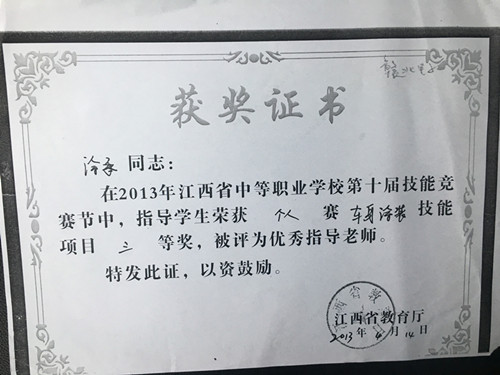 赣北
获奖证书
同志：
在2013年江西省中等职业学校第十届技能竞
赛节中，指导学生荣获 个人 赛 车身涂装 技能
项目 三 等奖，被评为优秀指导老师。
特发此证，以资鼓励。
江西省教育厅
2013年4月14日